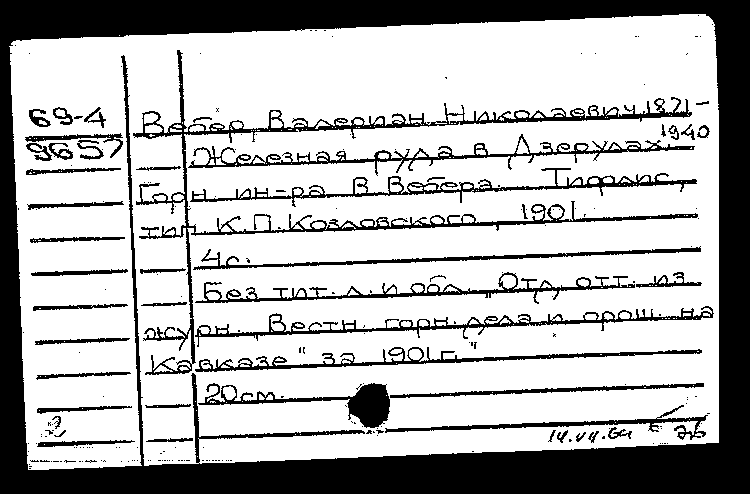 69-4
9657
Вебер, Валериан Николаевич, 1871-
1940
Железная руда в Дзерулах.
Горн. ин-ра В. Вебера. Тифлис,
тип. К.П. Козловского, 1901.
4с.
Без тит. л. и обл. "Отд. отт. из
журн. "Вестн. горн. дела и орош. на
Кавказе" за 1901г."
20см.
2